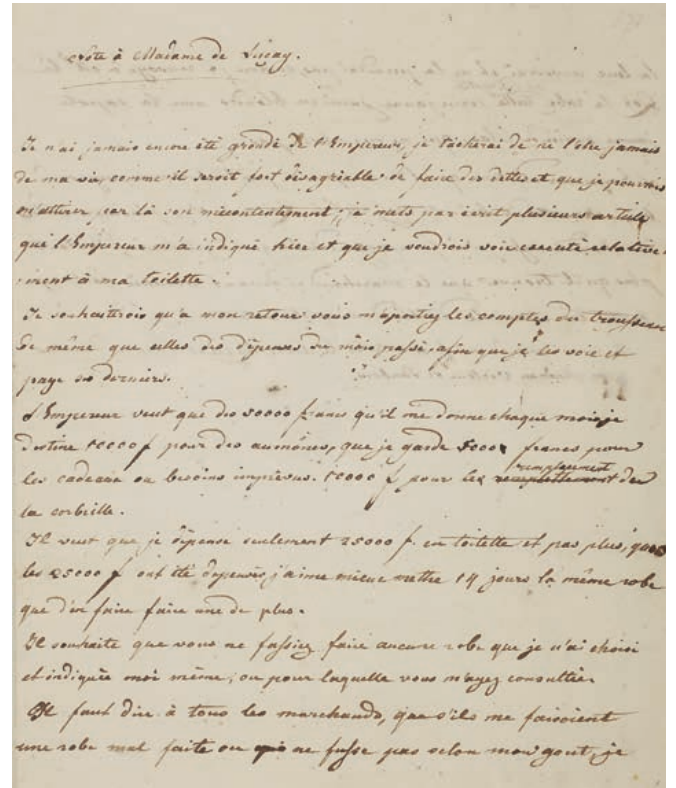 Note à Madame de Luçay.
Je n'ai jamais encore été grondé de l'Empereur, je tacherai de ne l'etre jamais
de ma vie, comme il seroit fort désagréable de faire des dettes et que je pourrois
m'attirer par là son mécontentement; je mets par écrit plusieurs article
que l'Empereur m'a indiqué hier et que je voudrois voir executé relative-
ment à ma toilette.
Je souhaitterois qu'a mon retour vous m'aportiez les comptes du trousseau
de même que celles des dépenses du mois passé, afin que je les voie et
paye ces derniers.
L'Empereur veut que des 50000 francs qu'il me donne chaque mois je
destine 10000 f pour des aumônes, que je garde 5000 francs pour
les cadeaux ou besoins imprévus. 10000 f pour les remplacement de
la corbeille.
Il veut que je dépense seulement 25000 f. en toilette et pas plus, quand
les 25000 f ont été dépensés j'aime mieux mettre 14 jours la même robe
que d'en faire faire une de plus.
Il souhaite que vous ne fassiez faire aucune robe que je n'ai choisi
et indiquée moi même, ou pour laquelle vous m'ayez consultée.
Il faut dire à tous les marchands, que s'ils me faisoient
une robe mal faite ou qui ne fusse pas selon mon gout, je